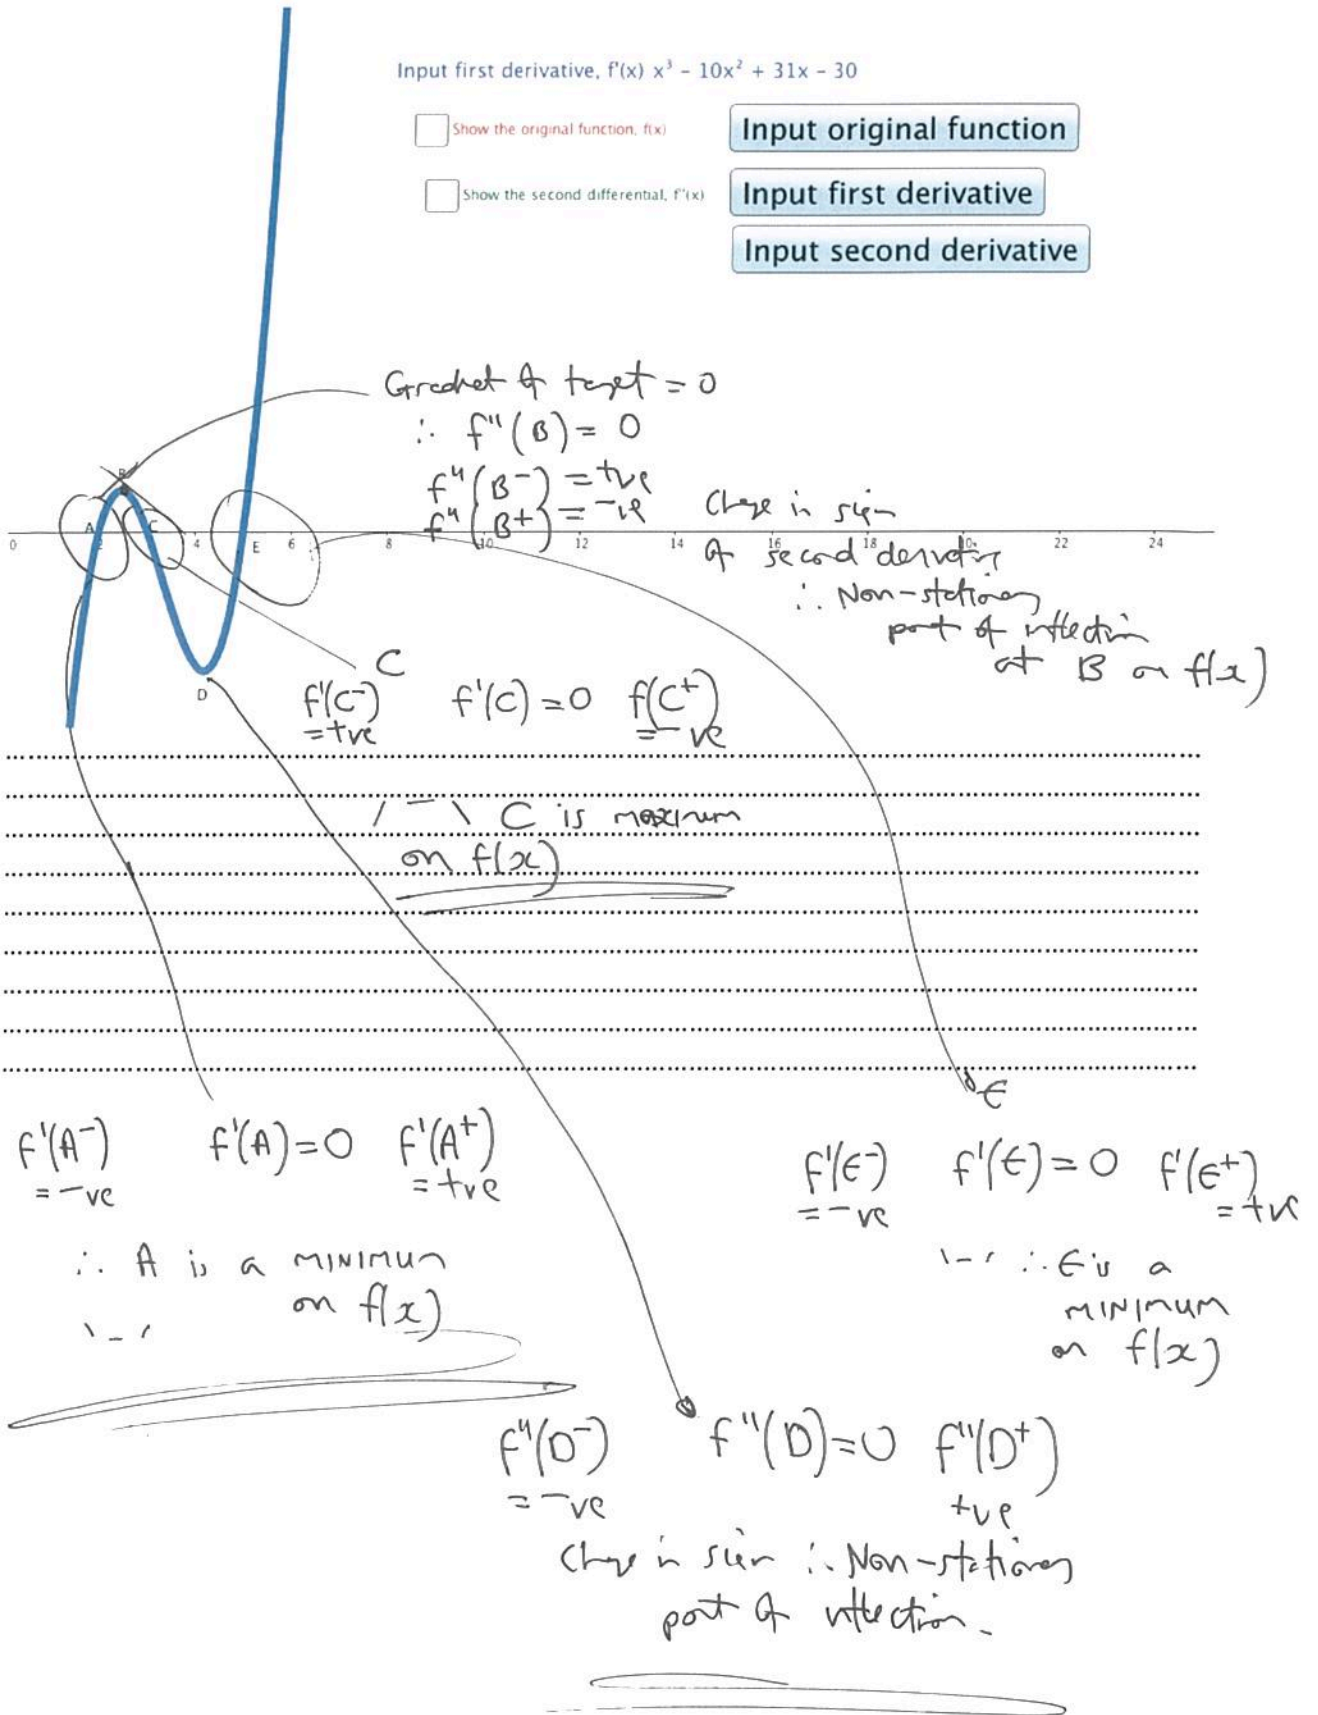 Input first derivative, f'(x) x³ - 10x² + 31x - 30
Show the original function, f(x)
Input original function
Show the second differential, f''(x)
Input first derivative
Input second derivative
Gradient of tangent = 0
∴ f''(B) = 0
f''(B⁻) = +ve
f''(B⁺) = -ve
Change in sign
of second derivative
∴ Non-stationary
point of inflection
at B on f(x)
B
A C E
0 2 4 6 8 10 12 14 16 18 20 22 24
D
C
f'(C⁻) f'(C) = 0 f(C⁺)
= +ve = -ve
/ ‾ \ C is maximum
on f(x)
E
f'(A⁻) f'(A) = 0 f'(A⁺)
= -ve = +ve
∴ A is a MINIMUM
on f(x)
\ _ /
f'(E⁻) f'(E) = 0 f'(E⁺)
= -ve = +ve
\ - / ∴ E is a
MINIMUM
on f(x)
f''(D⁻) f''(D) = 0 f''(D⁺)
= -ve +ve
Change in sign ∴ Non-stationary
point of inflection.